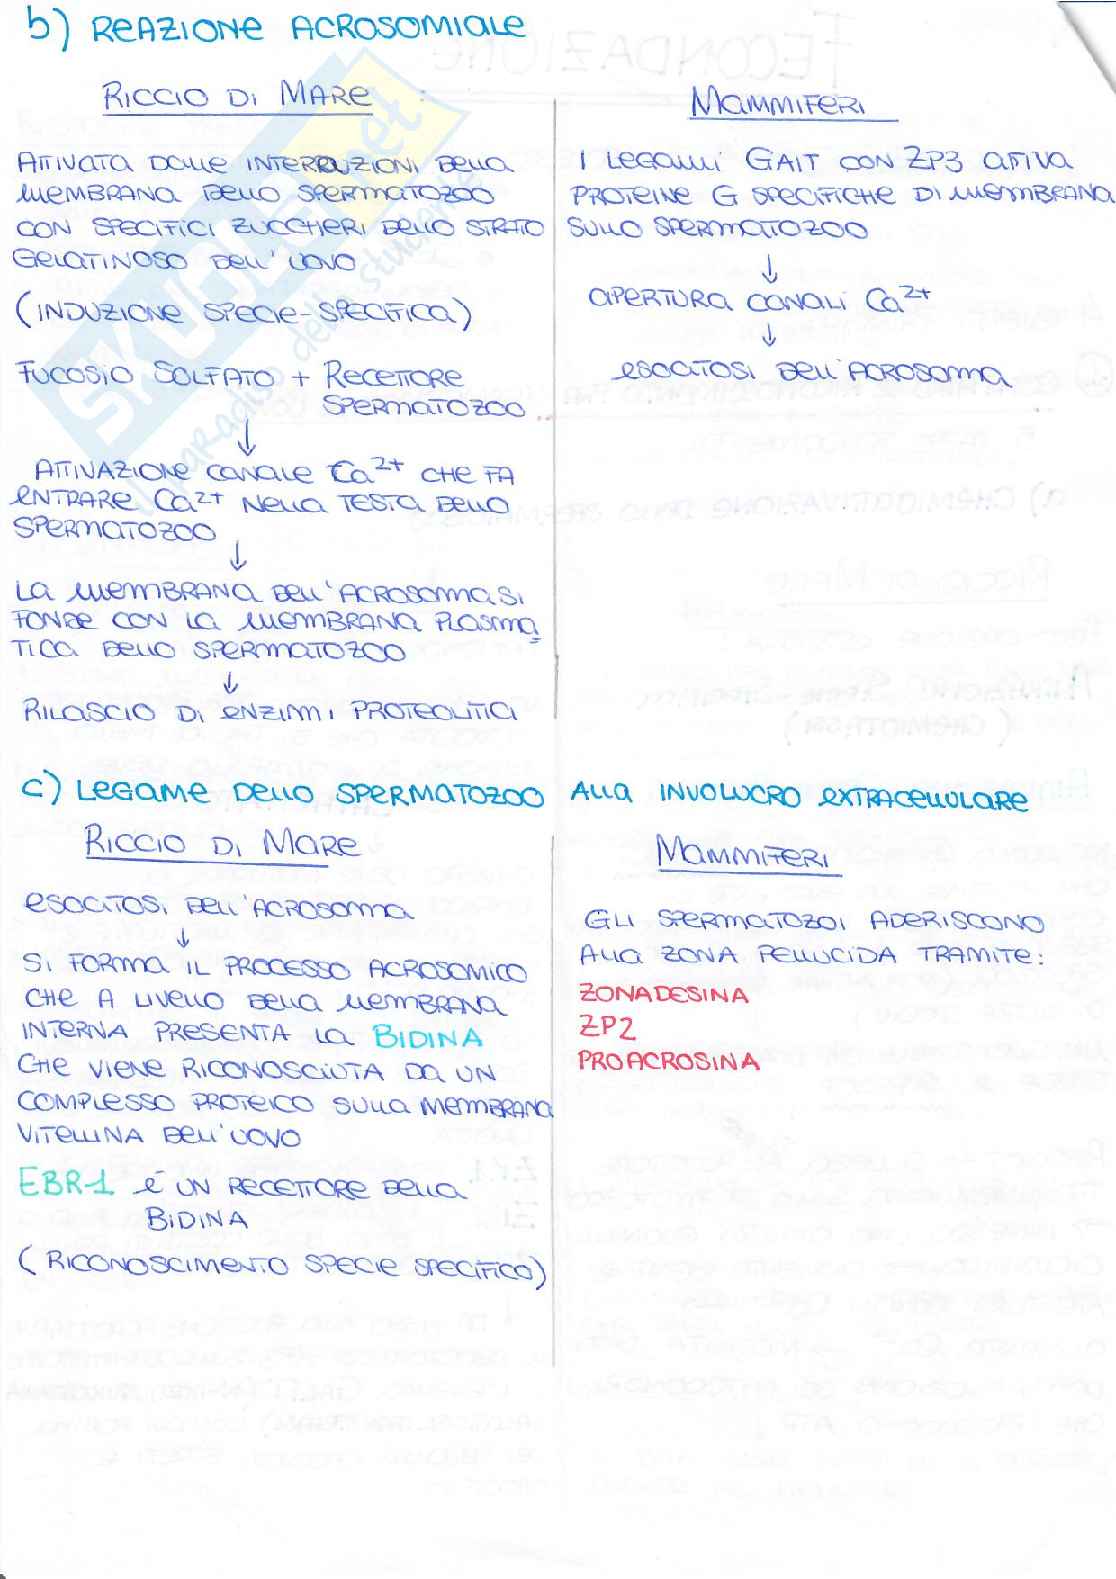 b) REAZIONE ACROSOMIALE
RICCIO DI MARE
ATIVATA DALLE INTERRUZIONI DELLA
MEMBRANA DELLO SPERMATOZOO
CON SPECIFICI ZUCCHERI DELLO STRATO
GELATINOSO DELL'UOVO
(INDUZIONE SPECIE-SPECIFICA)
FUCOSIO SOLFATO + RECETTORE
SPERMATOZOO
↓
ATTIVAZIONE CANALE Ca2+ CHE FA
ENTRARE Ca2+ NELLA TESTA DELLO
SPERMATOZOO
↓
LA MEMBRANA DELL'ACROSOMA SI
FONDE CON LA MEMBRANA PLASMA
TICA DELLO SPERMATOZOO
↓
RILASCIO DI ENZIMI PROTEOLITICI
MAMMIFERI
I LEGAMI GAlT CON ZP3 ATIVA
PROTEINE G SPECIFICHE DI MEMBRANA
SULLO SPERMATOZOO
↓
APERTURA CANALI Ca2+
↓
ESOCITOSI DELL'ACROSOMA
c) LEGAME DELLO SPERMATOZOO ALLA INVOLUCRO EXTRACELLULARE
RICCIO DI MARE
ESOCITOSI DELL'ACROSOMA
↓
SI FORMA IL PROCESSO ACROSOMICO
CHE A LIVELLO DELLA MEMBRANA
INTERNA PRESENTA LA BIDINA
CHE VIENE RICONOSCIUTA DA UN
COMPLESSO PROTEICO SULLA MEMBRANA
VITELLINA DELL'UOVO
EBR-1 É UN RECETTORE DELLA
BIDINA
(RICONOSCIMENTO SPECIE SPECIFICO)
MAMMIFERI
GLI SPERMATOZOI ADERISCONO
ALLA ZONA PELLUCIDA TRAMITE:
ZONADESINA
ZP2
PROACROSINA
SKUOLA.net
il paradiso dello studente